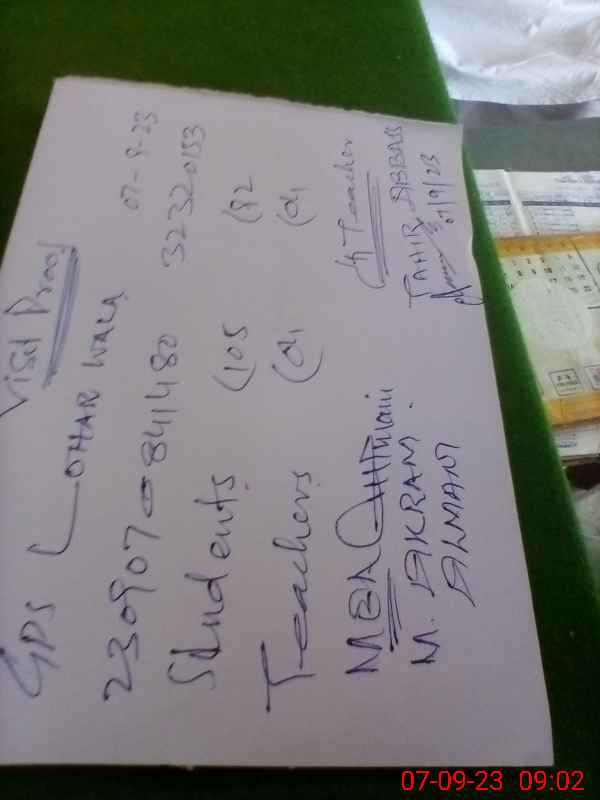 Visit Proof
GPS LOHAR WALA 07-9-23
230907-841480 32320153
Students (105 (82
Teachers (01 (01
MEA Ch Teacher
M. AKRAM. TAHIR ABBASS
ALMANI 07/9/23
07-09-23 09:02